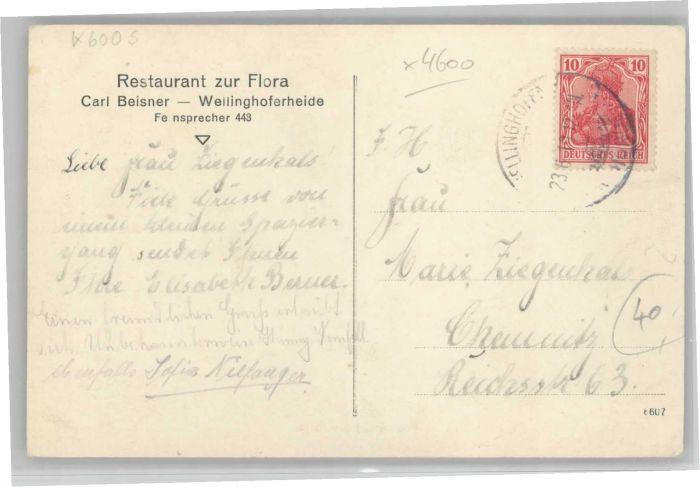 K600S
x4600
Restaurant zur Flora
Carl Beisner — Wellinghoferheide
Fe nsprecher 443
10 10
DEUTSCHES REICH
ELLINGHOF
23.
Liebe Frau Ziegenhals
Viele Grüsse von
einem kleinen Spazier-
gang sendet Ihnen
Ihre Elisabeth Berner.
Einen freundlichen Gruß erlaubt
sich
ebenfalls Sofie
F. H.
Frau
Marie Ziegenhals
Chemnitz
Reichsstr 63.
40
t 607